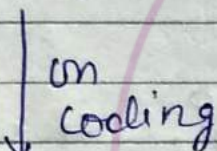 on
cooling